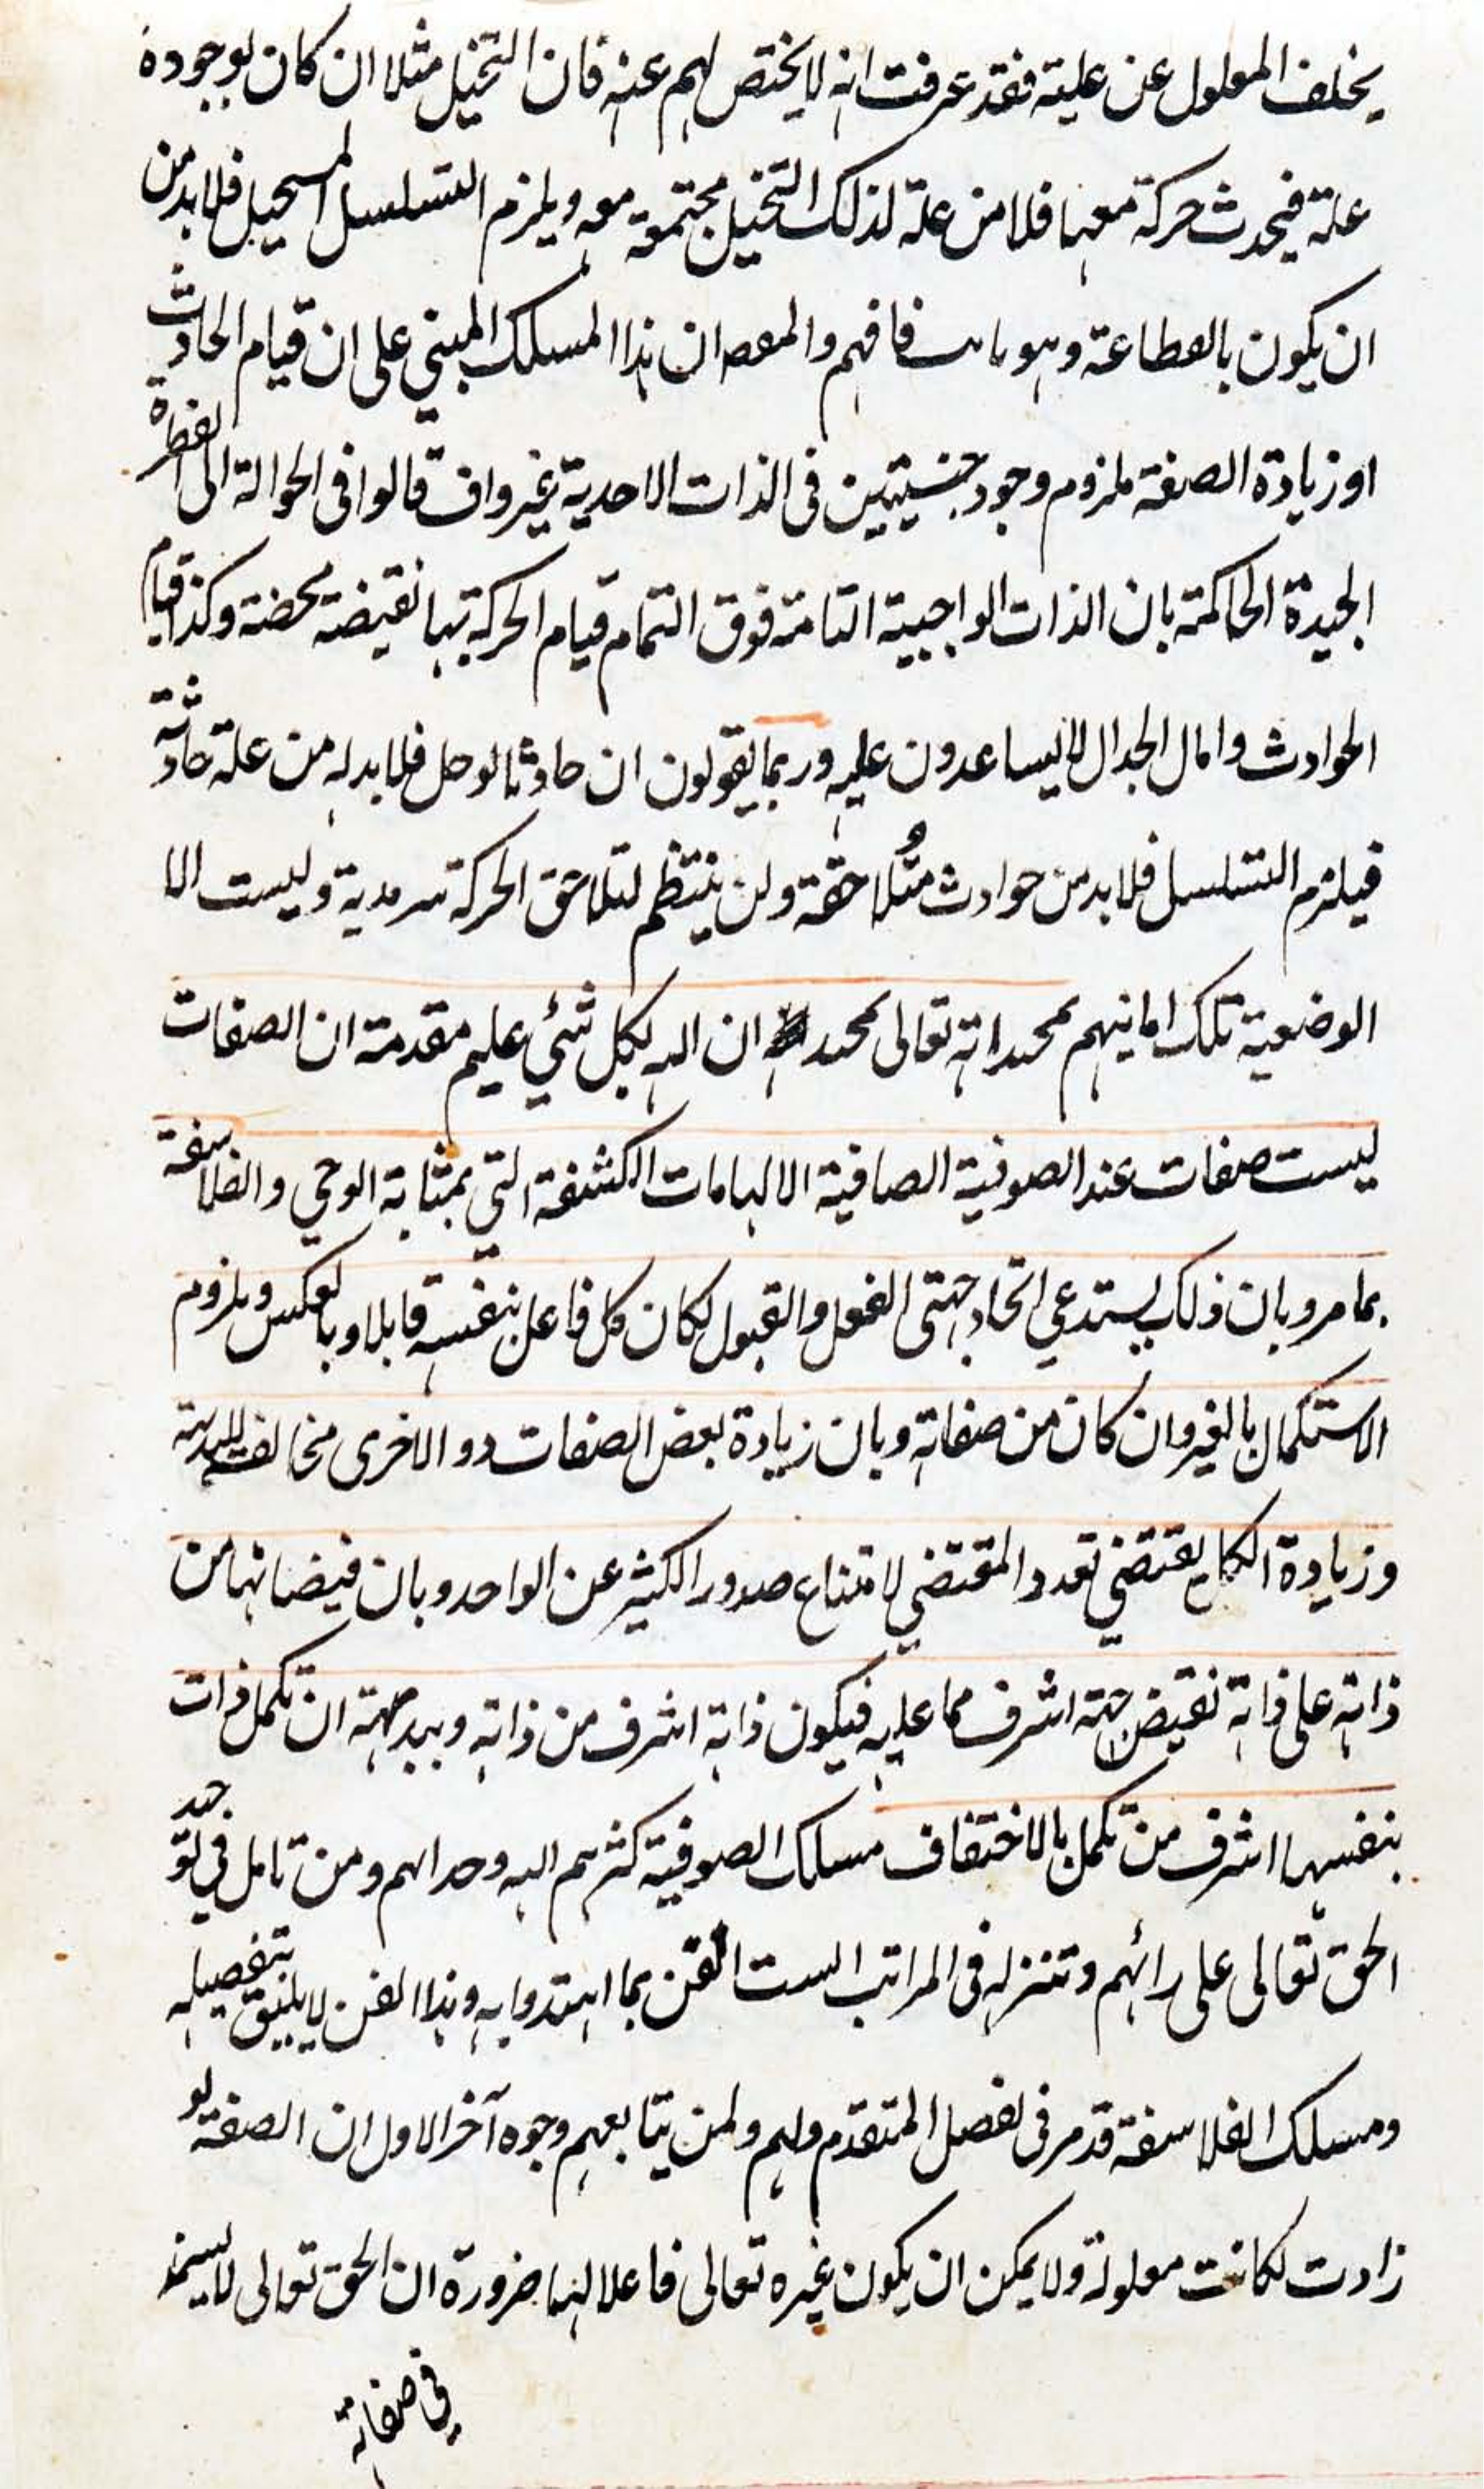 يخلف المعلول عن عليته فقد عرفت انه لا يختص لهم عنه فان التخيل مثلا ان كان لوجوده
علة فيحدث حركة معها فلا من علة لذلك التخيل مجتمعة معه ويلزم التسلسل المستحيل فلا بد من
ان يكون بانقطاعه وهو فافهم والمقصد ان هذا المسلك المبني على ان قيام الحادث
او زيادة الصفة ملزوم وجود حيثيتين في الذات الاحدية غير واف قالوا في الحوالة الى الفطرة
الجيدة الحاكمة بان الذات الواجبية التامة فوق التمام قيام الحركة بها نقيضة محضة وكذا قيام
الحوادث وامال الجدال لا يساعدون عليه وربما يقولون ان حادثا لو حل فلا بد له من علة حادثة
فيلزم التسلسل فلا بد من حوادث متلاحقة ولن ينتظم لتلاحق الحركة سرمدية وليست الا
الوضعية تلك امانيهم ان الله بكل شيء عليم مقدمة ان الصفات
ليست صفات عند الصوفية الصافية الالهامات الكشفة التي بمثابة الوحي والفلاسفة
بما مر وبان ذلك يستدعي اتحاد جهتي الفعل والقبول لكان كل فاعل بنفسه قابلا وبالعكس ويلزوم
الاستكمال بالغير وان كان من صفاته وبان زيادة بعض الصفات دو الاخرى مخالف للبديهة
وزيادة الكل يقتضي تعدد المقتضي لامتناع صدور الكثير عن الواحد وبان فيضانها من
ذاته على ذاته نقيض جهة اشرف مما عليه فيكون ذاته اشرف من ذاته وببديهة ان تكمل ذات
بنفسها اشرف من تكمل بالاختفاف مسلك الصوفية كثرهم الله وحدانهم ومن تامل في توحيد
الحق تعالى على رائهم وتنزله في المراتب الست اتقن بما اهتدوا به وهذا الفن لا يليق بتفصيله
ومسلك الفلاسفة قد مر في الفصل المتقدم ولهم ولمن يتابعهم وجوه آخر الاول ان الصفة لو
زادت لكانت معلولة ولا يمكن ان يكون غيره تعالى فاعلا لها ضرورة ان الحق تعالى لا يستمد
في صفاته